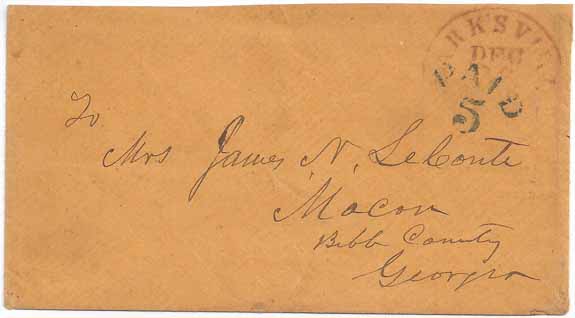 ARKSVI
DEC
PAID
5
To
Mrs James N. LeConte
Macon
Bibb County
Georgia